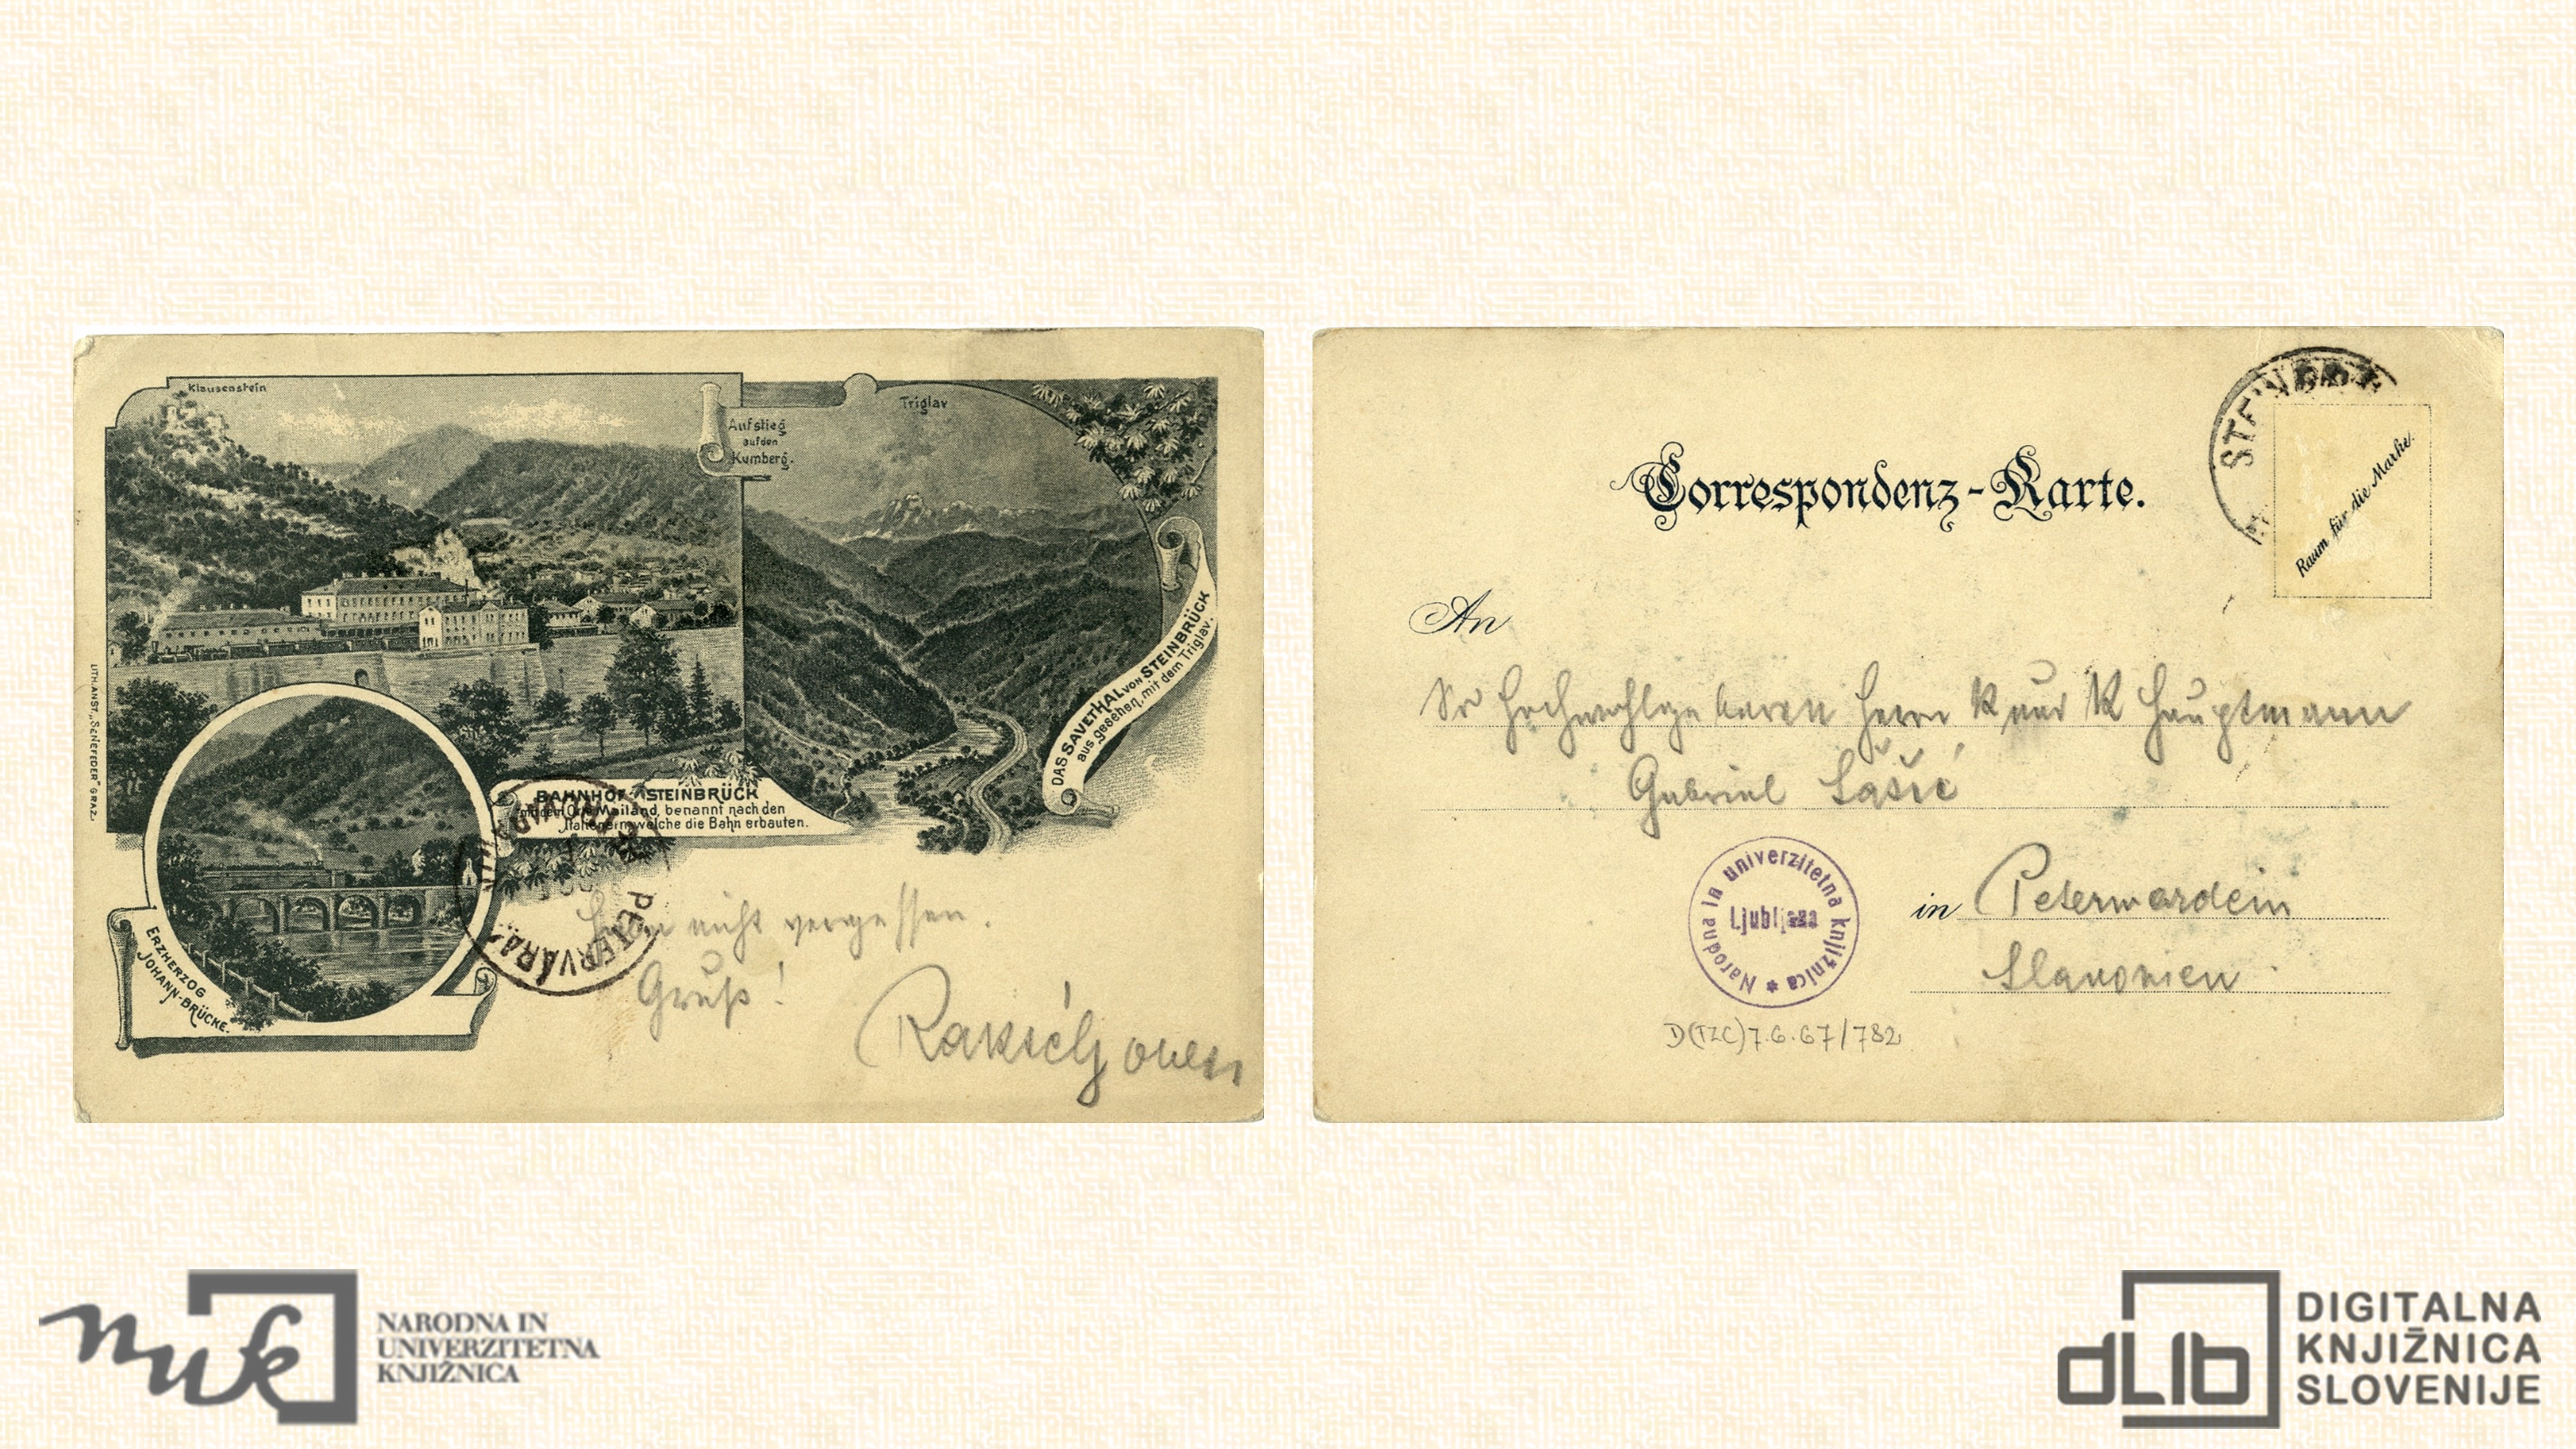 Klausenstein
Aufstieg
auf den
Kumberg.
Triglav
DAS SAVETHAL VON STEINBRÜCK
aus gesehen, mit dem Triglav.
BAHNHOF STEINBRÜCK
mit dem Orte Mailand, benannt nach den
Italienern welche die Bahn erbauten.
LITH. ANST. „SENEFEDER" GRAZ.
ERZHERZOG
JOHANN-BRÜCKE.
PÉTERVÁRAD
nicht vergessen.
Gruß!
Correspondenz-Karte.
STEINBRÜ
Raum für die Marke.
An
Sr Hochwohlgeboren Herrn K und K Hauptmann
Gabriel Šašić
in Peterwardein
Slavonien
Narodna in univerzitetna knjižnica *
Ljubljana
D(TZC)7.6.67/782
nuk
NARODNA IN
UNIVERZITETNA
KNJIŽNICA
dLib
DIGITALNA
KNJIŽNICA
SLOVENIJE